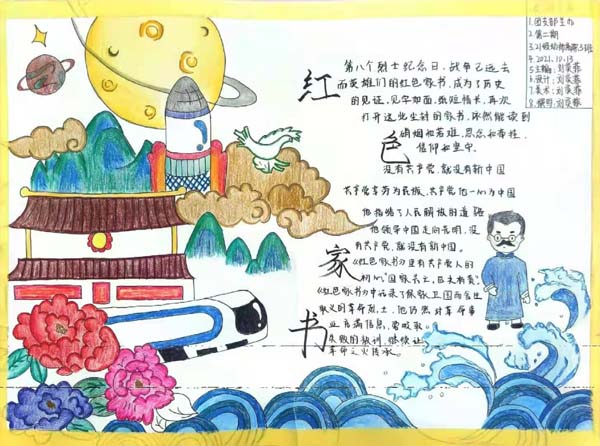 1.团支部主办
2.第二期
4.2021.10.13
5.主编:刘奕蓉
6.设计:刘奕蓉
7.美术:刘奕蓉
8.撰写:刘奕蓉
红色家书
第八个烈士纪念日,战争已远去
而英雄们的红色家书,成为了历史
的见证。见字如面,纸短情长,再次
打开这些尘封的家书,依然能读到
硝烟和苦难、思念和牺牲、
信仰和坚守。
没有共产党,就没有新中国
共产党辛劳为民族,共产党他一心为中国
他指给了人民解放的道路
他领导中国走向光明,没
有共产党,就没有新中国。
《红色家书》里有共产党人的
初心"国家兴亡,匹夫有责"
《红色家书》中记录了保家卫国而舍生
取义的革命烈士,他仍然对革命事
业充满信息,要吸取
失败的教训,继续让
革命之火传承。